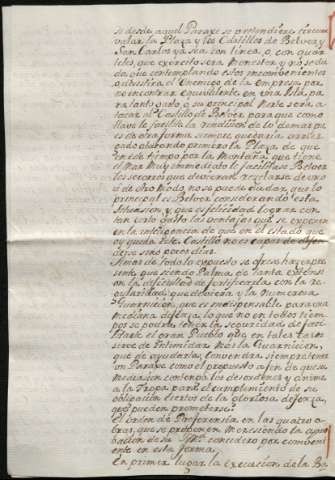 si desde aquel Paraxe se pretendiere circum
valar la Plaza y los Castillos de Belver y
San Carlos ya sea con linea, o con quar
teles, que exercito sera Menester, y no se du
da que contemplando estos inconvenientes
no encontrar Equivalente en esta Isla, pa
ra tanto gasto, o su principal Norte será a
tacar al Castillo de Belver, para que como
llave le facilite la rendicion de lo demas pues
de otra forma siempre quedaria arries
gado abordando primero la Plaza, de que
en este tiempo por la Montaña que tiene
el Mar Muy immediato le facilitase Belver
los socorros que devieran recelarse de uno
u de otro Modo no se puede dudar, que lo
principal es Belver considerando esta
Situacion y que felicidad lograr con
tan corto gasto las ventajas que se exponen
en la inteligencia de que en el estado que
oy queda este Castillo no es capaz de defen
derse sino pocos dias.
Amas de todo lo expuesto se ofrece hazer pre
sente, que siendo Palma de tanta extension
en la dificultad de fortificarla con la re
gularidad que deviera, y la Numerosa
Guarnicion, que es indispensable para una
mediana defensa, lo que no en todos tiem
pos se podra tener la seguridad de faci
litarle el gran Pueblo que en tales casos
sirve de intimidar Mas la Guarnicion,
que de ayudarla; Convendra siempre tener
un Paraxe como el propuesto a fin de que su
Mediacion contenga los desordenes y anime
a la Tropa para el cumplimiento de su
obligacion ciertos de la gloriosa defensa,
que pueden prometerse.
El orden de Preferencia en las quatro o
bras, que se proponen Mereciendo la apro
bacion de su considero por convenien
te en esta forma,
En primer lugar la execucion de la Ba